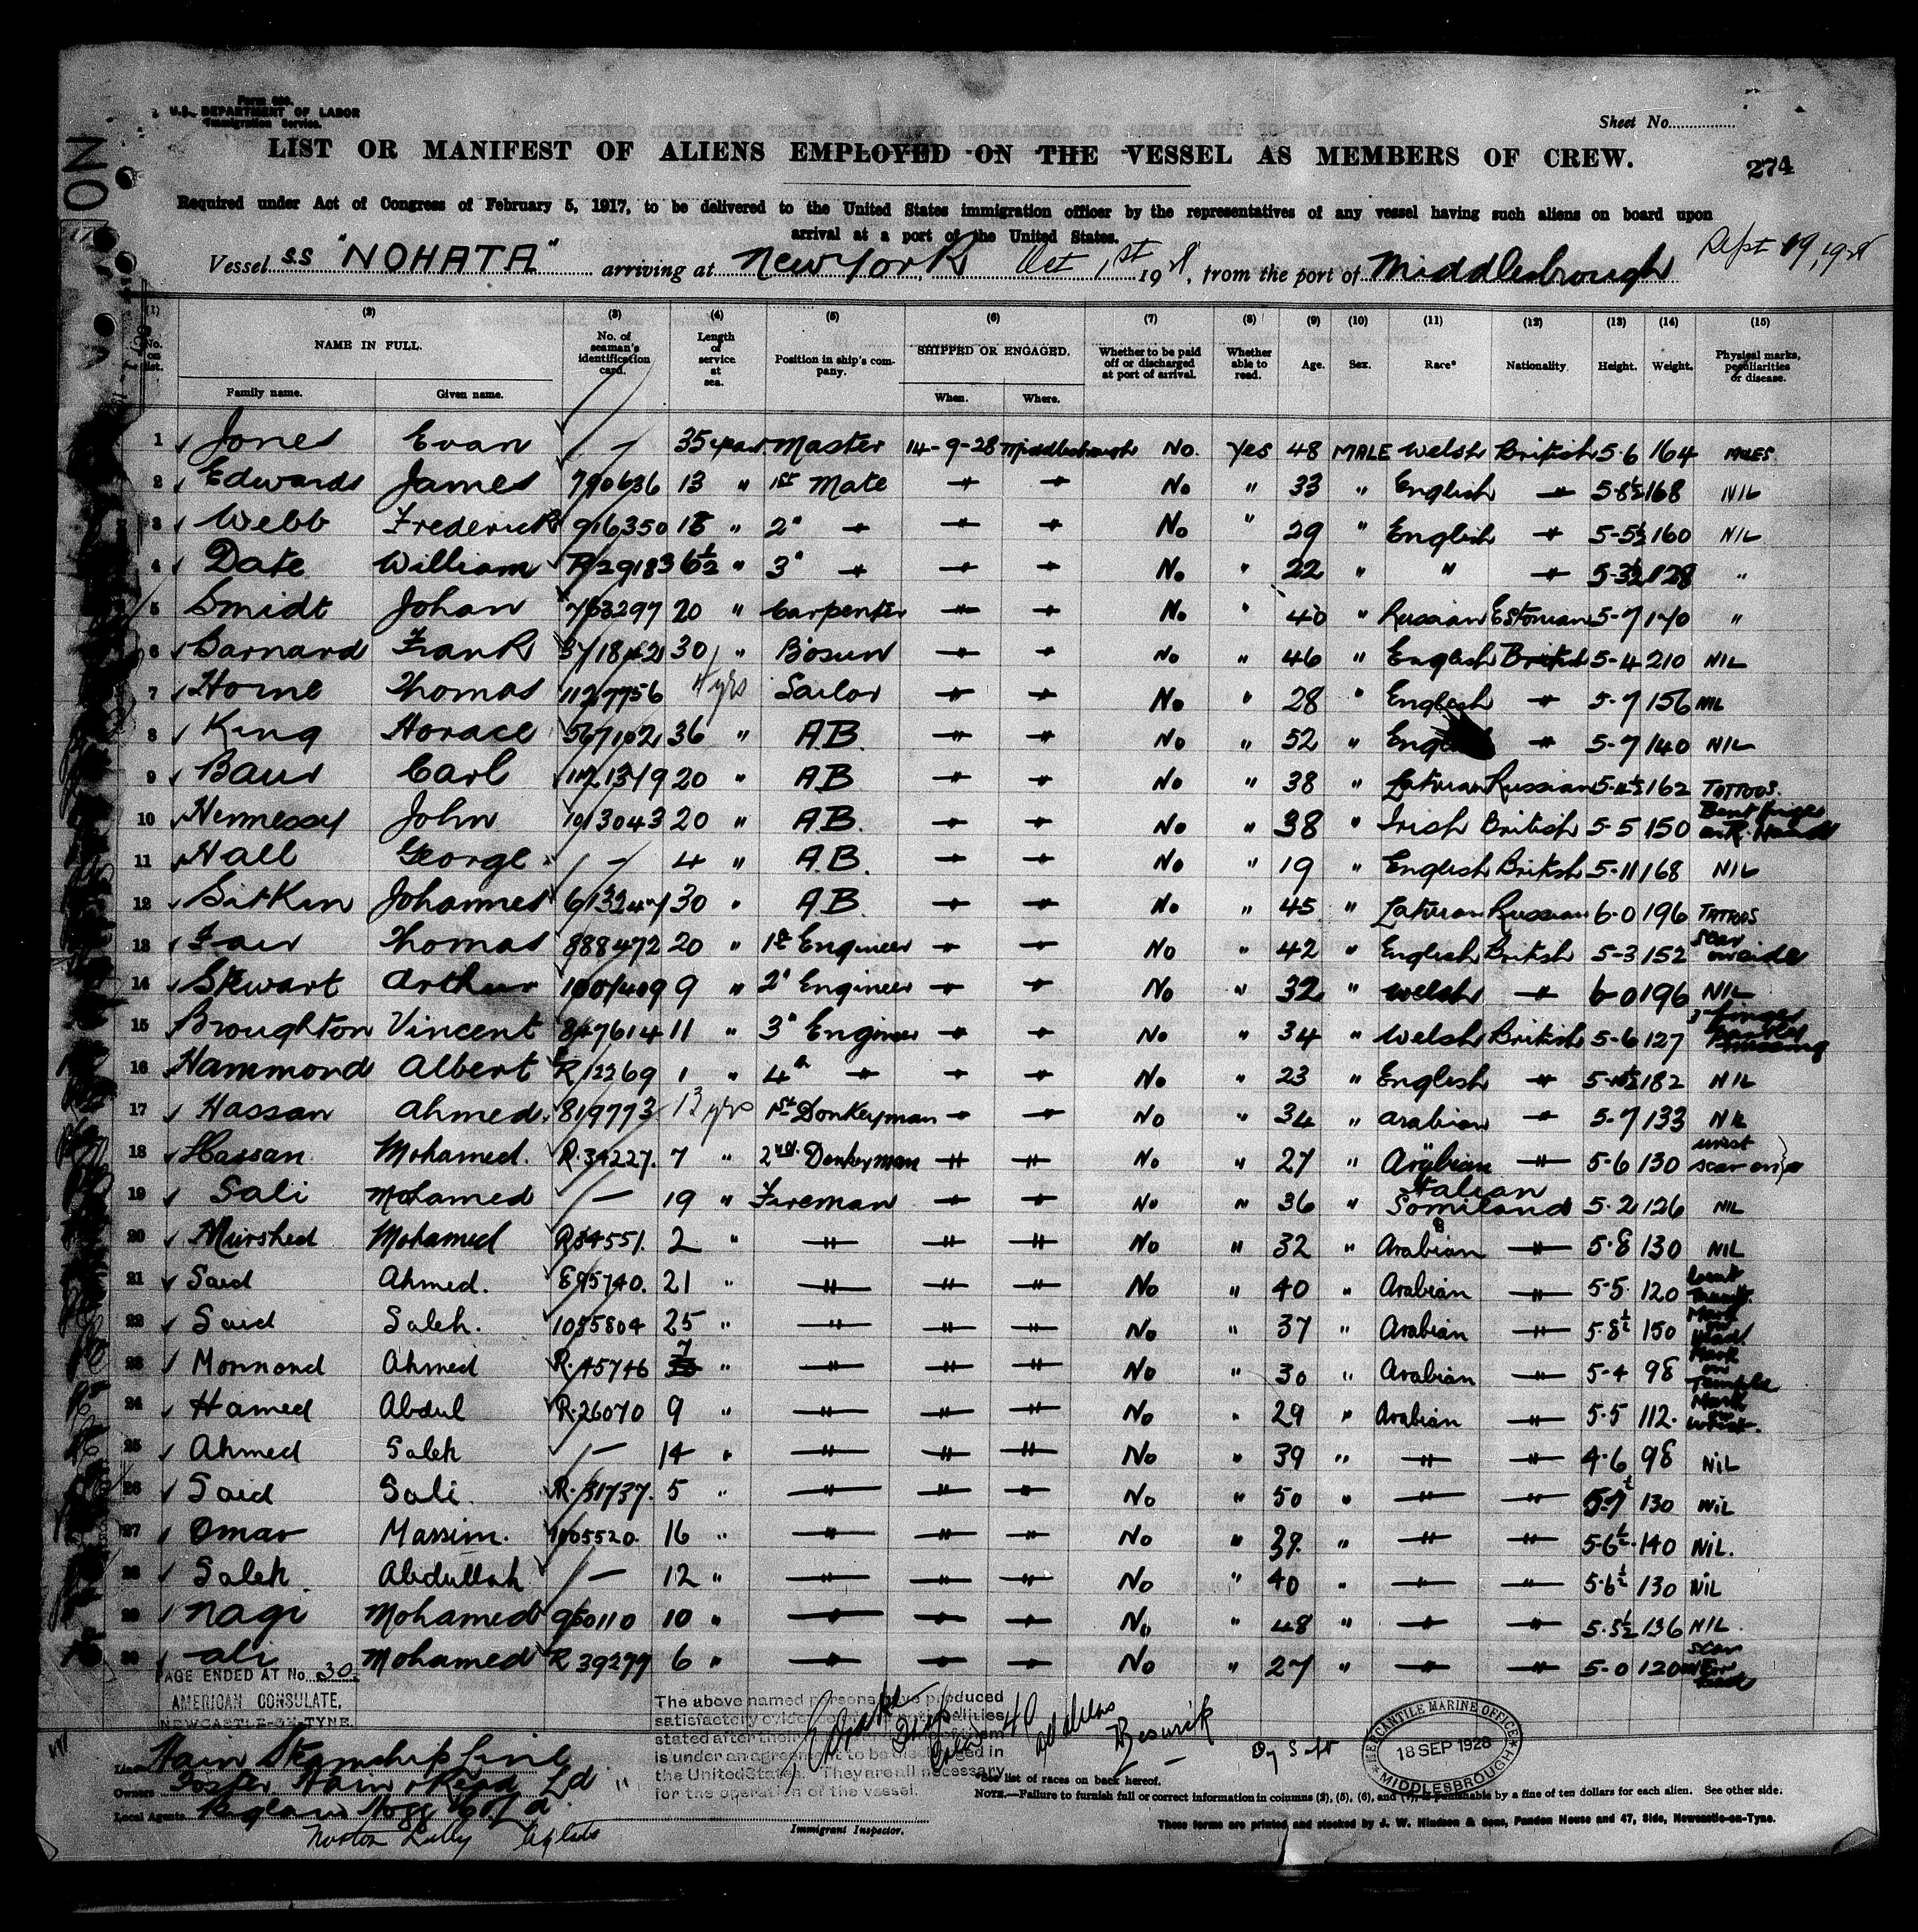 Form 680.
U.S. DEPARTMENT OF LABOR
Immigration Service.
Sheet No.
LIST OR MANIFEST OF ALIENS EMPLOYED ON THE VESSEL AS MEMBERS OF CREW.
274
Required under Act of Congress of February 5, 1917, to be delivered to the United States immigration officer by the representatives of any vessel having such aliens on board upon
arrival at a port of the United States.
Sept 19, 1928
Vessel SS "NOHATA" arriving at New York Oct 1st 1928, from the port of Middlesbrough
(1) (2) (3) (4) (5) (6) (7) (8) (9) (10) (11) (12) (13) (14) (15)
No. on list. NAME IN FULL. No. of seaman's identification card. Length of service at sea. Position in ship's company. SHIPPED OR ENGAGED. Whether to be paid off or discharged at port of arrival. Whether able to read. Age. Sex. Race* Nationality. Height. Weight. Physical marks, peculiarities or disease.
Family name. Given name. When. Where.
1 Jones Evan - 35 years Master 14-9-28 Middlesbrough No. Yes 48 MALE Welsh British 5-6 164 MOLES
2 Edwards James 790636 13 " 1st Mate " " No " 33 " English " 5-8½ 168 NIL
3 Webb Frederick 916350 " 2" " " " No " 29 " English " 5-5½ 160 NIL
4 Date William R29183 6½ " 3" " " " No " 22 " " " 5-3½ 128 "
5 Smidt Johan 763297 20 " Carpenter " " No " 40 " Russian Estonian 5-7 170 "
6 Barnard Frank 30 " Bosun " " No " 46 " English British 5-4 210 NIL
7 Horne Thomas 1127756 4 yrs Sailor " " No " 28 " English " 5-7 156 NIL
8 King Horace 567102 36 " AB " " No " 52 " English " 5-7 140 NIL
9 Baur Carl 1121319 20 " AB " " No " 38 " Latvian Russian 162 TATTOOS.
10 Hennessy John 1013043 20 " AB. " " No " 38 " Irish British 5-5 150 Bent finger on R. Hand
11 Hall George - 4 " A.B. " " No " 19 " English British 5-11 168 NIL
12 Sitkin Johannes 613247 30 " AB. " " No " 45 " Latvian Russian 6-0 196 TATTOOS
13 Fair Thomas 888472 20 " 1st Engineer " " No " 42 " English British 5-3 152 Scar on side
14 Stewart Arthur 1001409 9 " 2" Engineer " " No " 32 " Welsh " 6-0 196 NIL
15 Broughton Vincent 847614 11 " 3" Engineer " " No " 34 " Welsh British 5-6 127 3 fingers missing
16 Hammond Albert R12269 1 " 4th " " " No " 23 " English " 182 NIL
17 Hassan Ahmed. 819773 13 yrs 1st Donkeyman " " No " 34 " Arabian " 5-7 133 NIL
18 Hassan Mohamed. R.34227. 7 " 2nd. Donkeyman " " No " 27 " Arabian " 5-6 130 scar on wrist
19 Sali Mohamed - 19 " Fireman " " No " 36 " Italian Somiland 5.2 126 NIL
20 Murshed Mohamed R34551. 2 " " " " No " 32 " Arabian " 5.8 130 NIL
21 Said Ahmed. 895740. 21 " " " " No " 40 " Arabian " 5-5 120
22 Said Saleh. 1055804 25 " " " " No " 37 " Arabian " 5.8½ 150 Mark on Head
23 Monnond Ahmed R.45746 7 " " " " No " 30 " Arabian " 5-4 98 Mark on Temple
24 Hamed Abdul R.26070 9 " " " " No " 29 " Arabian " 5.5 112. Mark on wrist.
25 Ahmed Saleh - 14 " " " " No " 39 " " " 4.6 98 NIL
26 Said Sali. R.31737. 5 " " " " No " 50 " " " 130 NIL
27 Omar Massim. 1005520. 16 " " " " No " 39. " " " 5.6½ 140 NIL.
28 Saleh Abdullah - 12 " " " " No " 40 " " " 5.6½ 130 NIL
29 Nagi Mohamed 960110 10 " " " " No " 48 " " " 5.5½ 136 NIL.
30 Ali Mohamed R 39279 6 " " " " No " 27 " " " 5-0 120 scar
PAGE ENDED AT No. 30.
AMERICAN CONSULATE,
NEWCASTLE-ON-TYNE.
The above named persons have produced
satisfactory evidence of the nationalities
stated after their
is under an agreement to be discharged in
the United States. They are all necessary
for the operation of the vessel.
MERCANTILE MARINE OFFICE
18 SEP 1928
MIDDLESBROUGH
Line Hain Steamship Line
Owners Foster Hain & Read Ld
Local Agents Hogg & Co Ld
Norton Lilly
Immigrant Inspector.
*See list of races on back hereof.
NOTE.—Failure to furnish full or correct information in columns (2), (5), (6), and (7), is punishable by a fine of ten dollars for each alien. See other side.
These forms are printed and stocked by J. W. Hindson & Sons, Pandon House and 47, Side, Newcastle-on-Tyne.